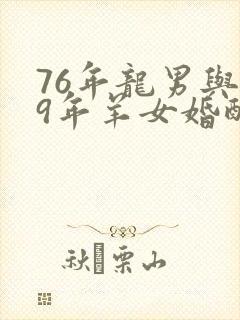 76年龍男與
9年羊女婚
秋 栗山